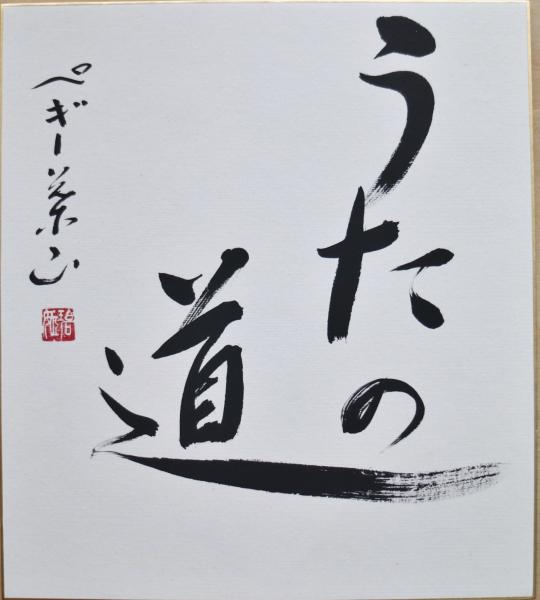 うたの
道
ペギー葉山